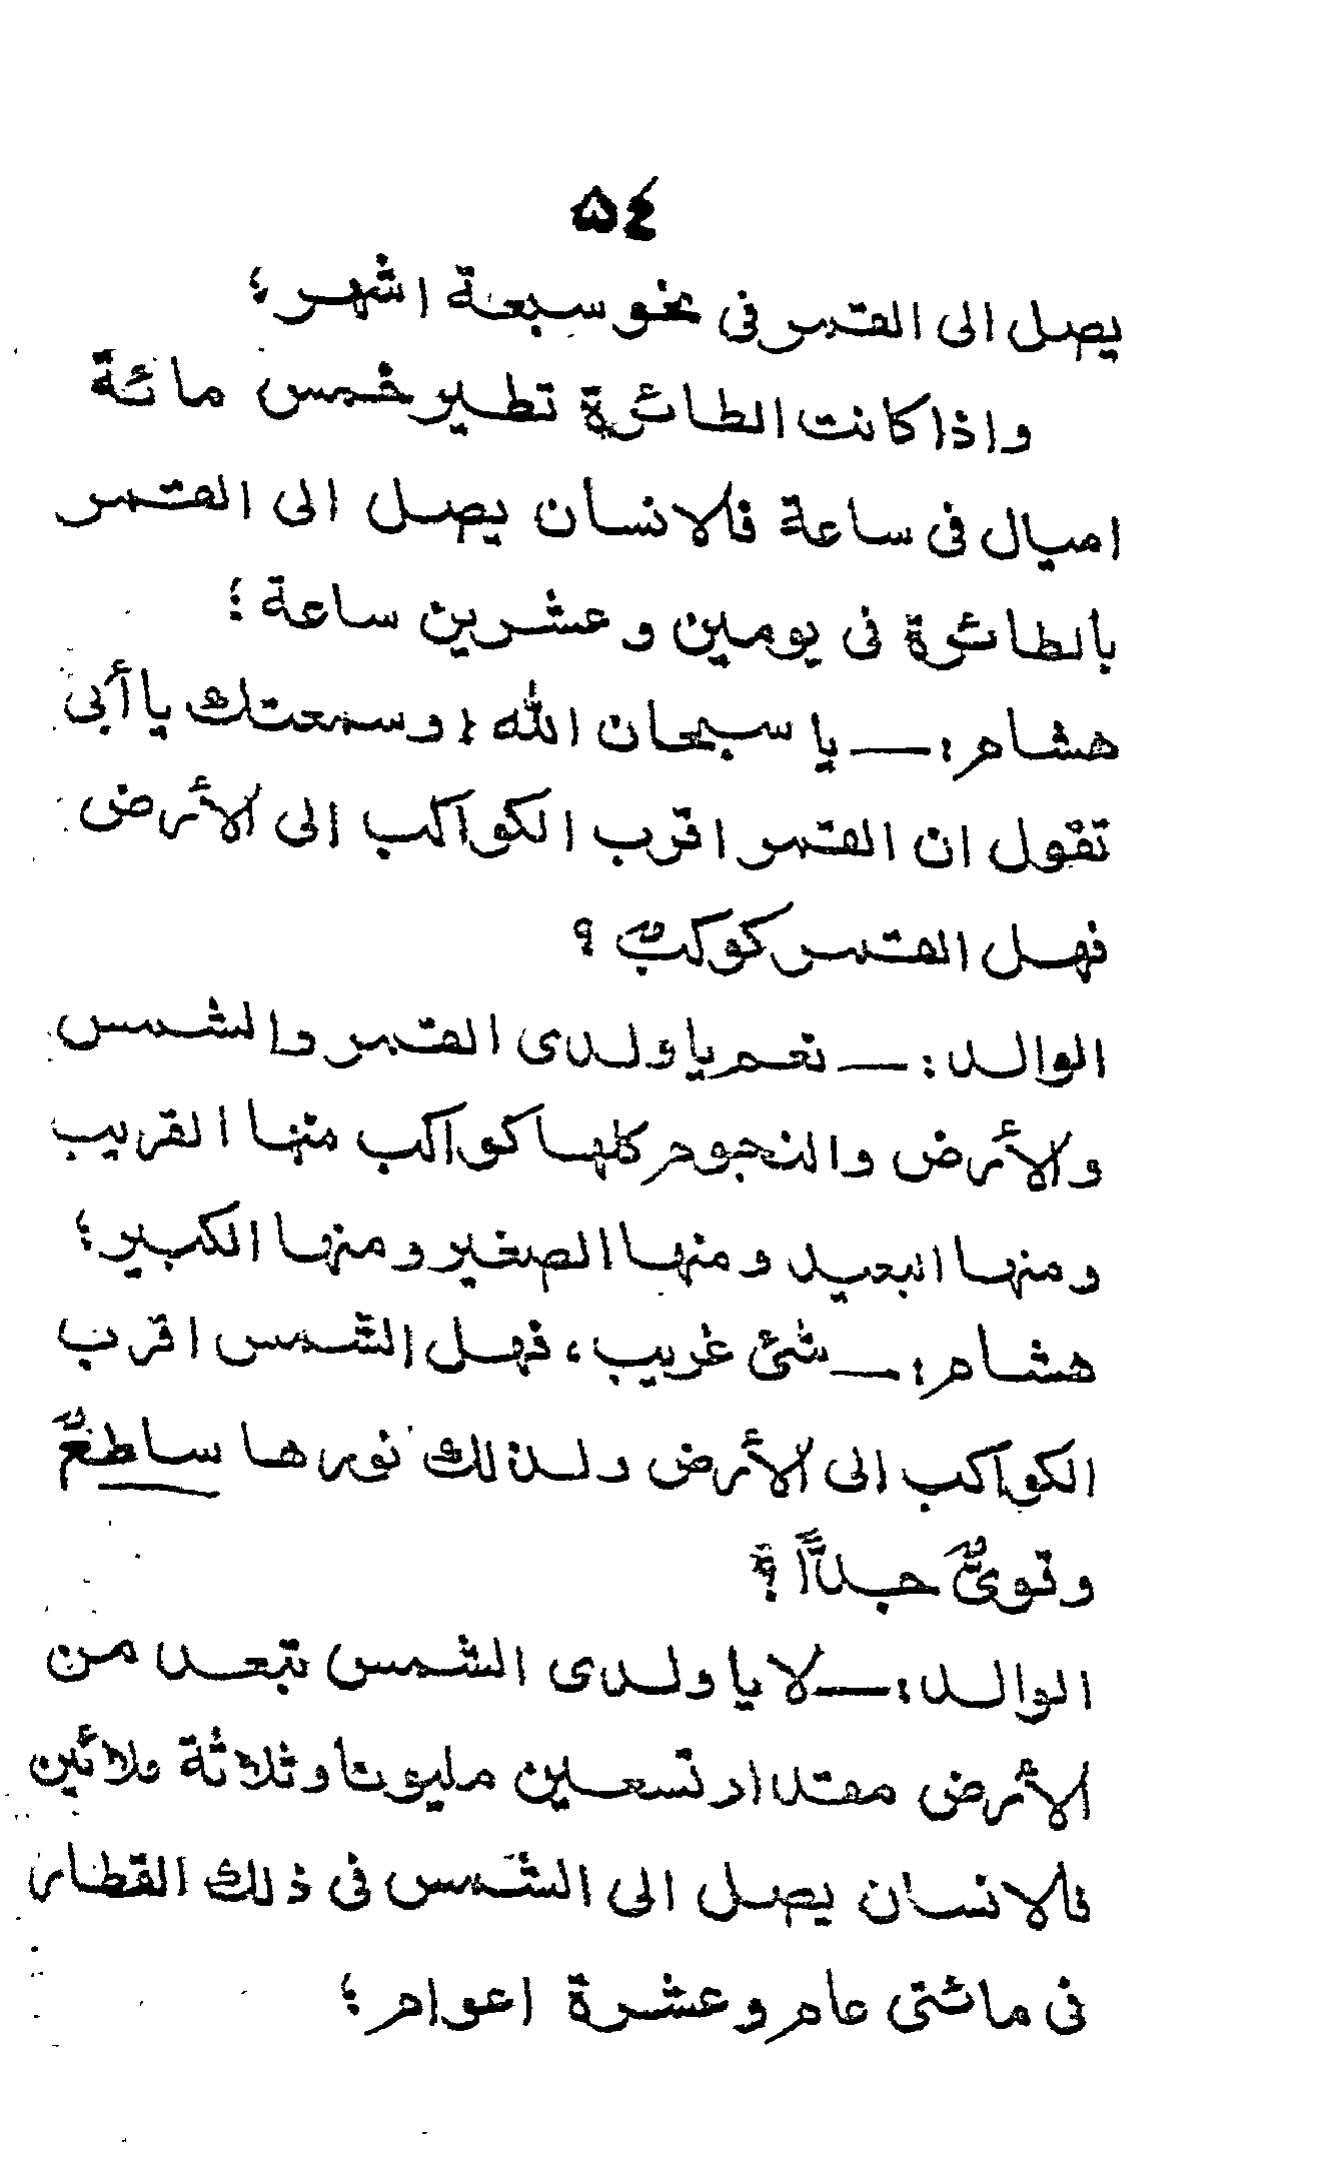 ٥٤
يصل الى القمر فى نحو سبعة اشهر؛
واذا كانت الطائرة تطير خمس مائة
اميال فى ساعة فلانسان يصل الى القمر
بالطائرة فى يومين وعشرين ساعة؛
هشام:— يا سبحان الله؛ وسمعتك يا أبى
تقول ان القمر اقرب الكواكب إلى الأرض
فهل القمر كوكبٌ؟
الوالد:— نعم يا ولدى القمر والشمس
والأرض والنجوم كلها كواكب منها القريب
ومنها البعيد ومنها الصغير ومنها الكبير؛
هشام:— شئ غريب، فهل الشمس اقرب
الكواكب الى الأرض ولذلك نورها ساطعٌ
وقوىٌّ جداًّ؟
الوالد:— لا يا ولدى الشمس تبعد من
الأرض مقدار تسعين مليونا وثلاثة ملائين
فلانسان يصل الى الشمس فى ذلك القطار
فى مائتى عام وعشرة اعوام؛